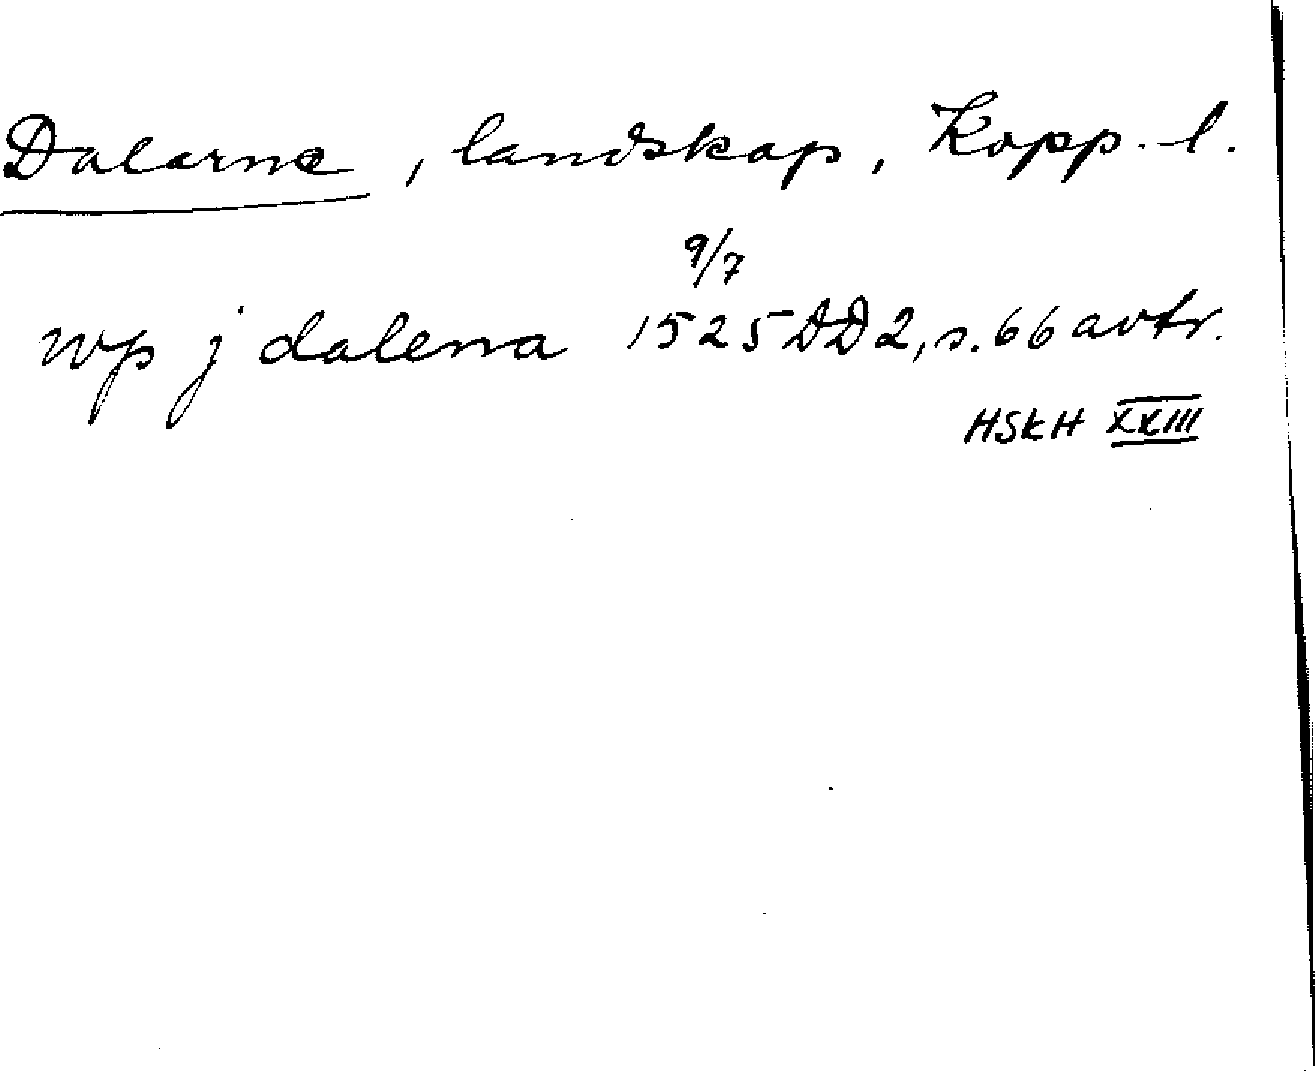 Dalarne, landskap, Kopp. l.
9/7
wp j dalena 1525 DD2, s. 66 avtr.
HSKH XXIII